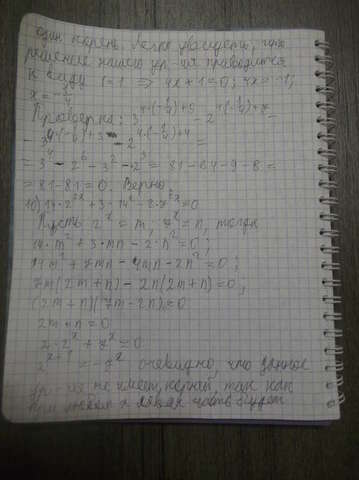 один корень. Легко убедиться, что
решение нашего ур-ия приводится
к виду t=1 ⇒ 4x+1=0; 4x=-1;
x=-1/4
Проверка: 3^(4·(-1/4)+5) - 2^(4·(-1/4)+7) -
- 3^(4·(-1/4)+3) - 2^(4·(-1/4)+4) =
= 3^4 - 2^6 - 3^2 - 2^3 = 81-64-9-8=
= 81-81=0. Верно.
10) 14·2^(2x) + 3·14^x - 2·7^(2x) = 0
Пусть 2^x = m, 7^x = n, тогда
14·m² + 3·mn - 2·n² = 0;
14m² + 7mn - 4mn - 2n² = 0;
7m(2m+n) - 2n(2m+n) = 0;
(2m+n)(7m-2n)=0
2m+n=0
2·2^x + 7^x = 0
2^(x+1) = -7^x очевидно, что данное
ур-ие не имеет корней, так как
при любом x левая часть будет